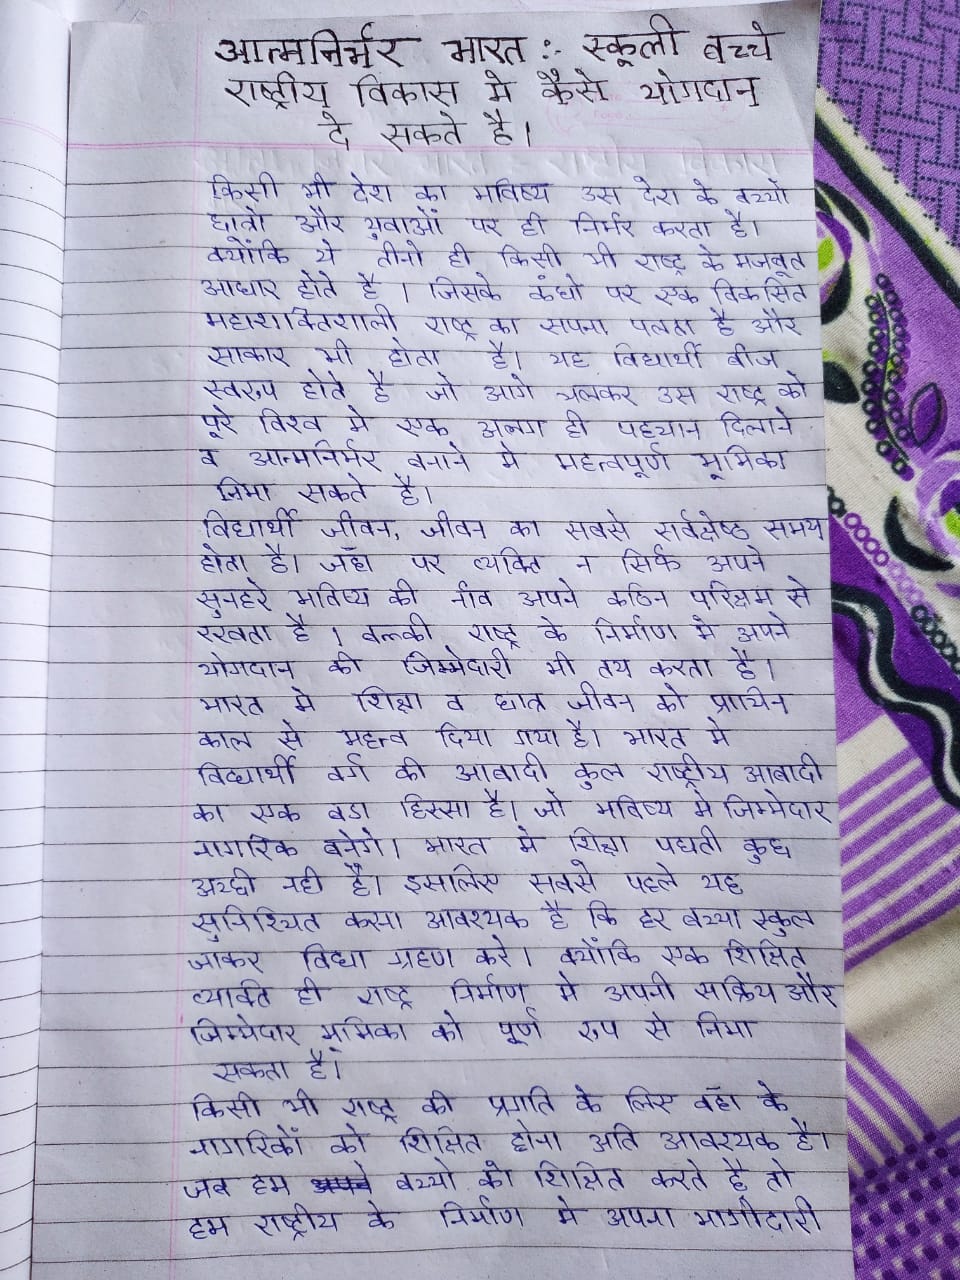 आत्मनिर्भर भारत :- स्कूली बच्चे
राष्ट्रीय विकास मे कैसे योगदान
दे सकते है।
किसी भी देश का भविष्य उस देश के बच्चों
छात्रों और युवाओं पर ही निर्भर करता है।
क्योंकि ये तीनो ही किसी भी राष्ट्र के मजबूत
आधार होते है। जिसके कंधो पर एक विकसित
महाशक्तिशाली राष्ट्र का सपना पलता है और
साकार भी होता है। यह विद्यार्थी बीज
स्वरुप होते है जो आगे चलकर उस राष्ट्र को
पूरे विश्व मे एक अलग ही पहचान दिलाने
व आत्मनिर्भर बनाने मे महत्वपूर्ण भूमिका
निभा सकते है।
विद्यार्थी जीवन, जीवन का सबसे सर्वश्रेष्ठ समय
होता है। जहाँ पर व्यक्ति न सिर्फ अपने
सुनहरे भविष्य की नींव अपने कठिन परिश्रम से
रखता है। बल्की राष्ट्र के निर्माण मे अपने
योगदान की जिम्मेदारी भी तय करता है।
भारत मे शिक्षा व छात्र जीवन को प्राचिन
काल से महत्व दिया गया है। भारत मे
विद्यार्थी वर्ग की आबादी कुल राष्ट्रीय आबादी
का एक बडा हिस्सा है। जो भविष्य मे जिम्मेदार
नागरिक बनेगे। भारत मे शिक्षा पद्यती कुछ
अच्छी नही है। इसलिए सबसे पहले यह
सुनिश्चित करना आवश्यक है कि हर बच्चा स्कुल
जाकर विद्या ग्रहण करे। क्योंकि एक शिक्षित
व्यक्ति ही राष्ट्र निर्माण मे अपनी सक्रिय और
जिम्मेदार भूमिका को पूर्ण रुप से निभा
सकता है।
किसी भी राष्ट्र की प्रगति के लिए वहाँ के
नागरिकों को शिक्षित होना अति आवश्यक है।
जब हम बच्चो को शिक्षित करते है तो
हम राष्ट्रीय के निर्माण मे अपना भागीदारी